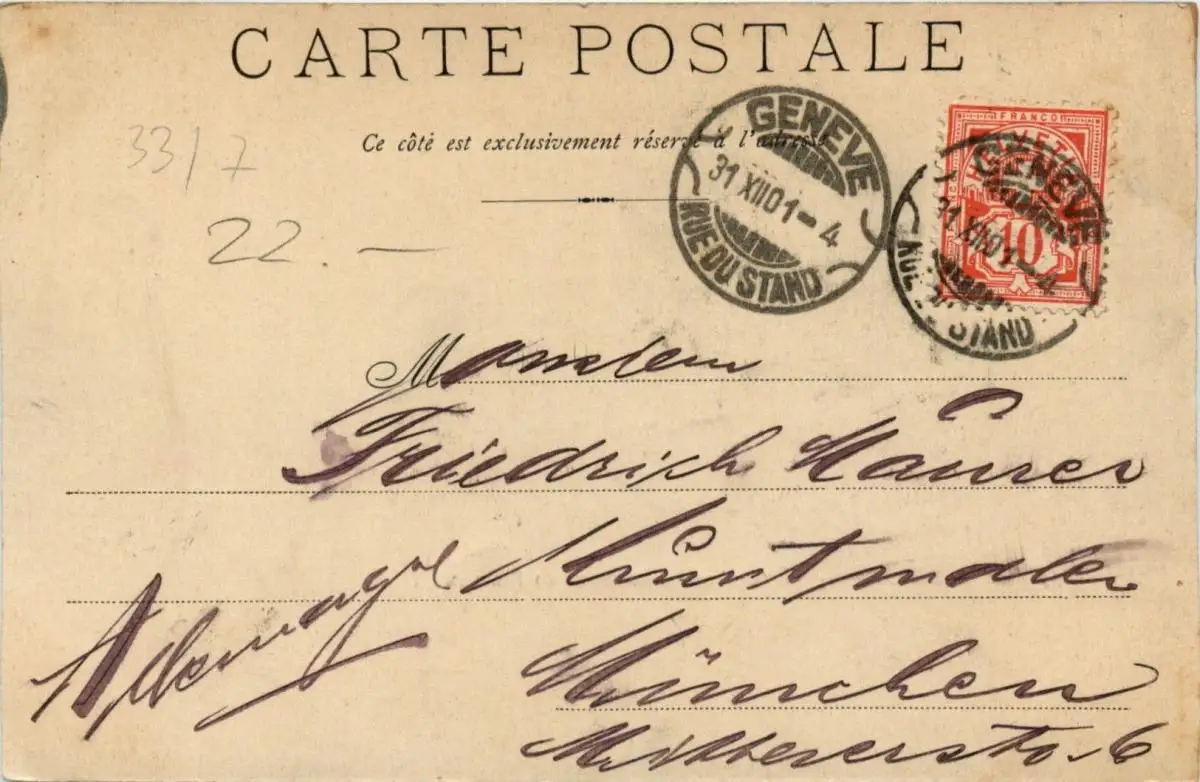 CARTE POSTALE
Ce côté est exclusivement réservé à l'adresse
33/7
22.—
GENEVE
31 XII 01 – 4
RUE DU STAND
FRANCO
10
GENEVE
31 XII 01 – 4
RUE DU STAND
M
Friedrich
Kunstmaler
Allemagne
München
6